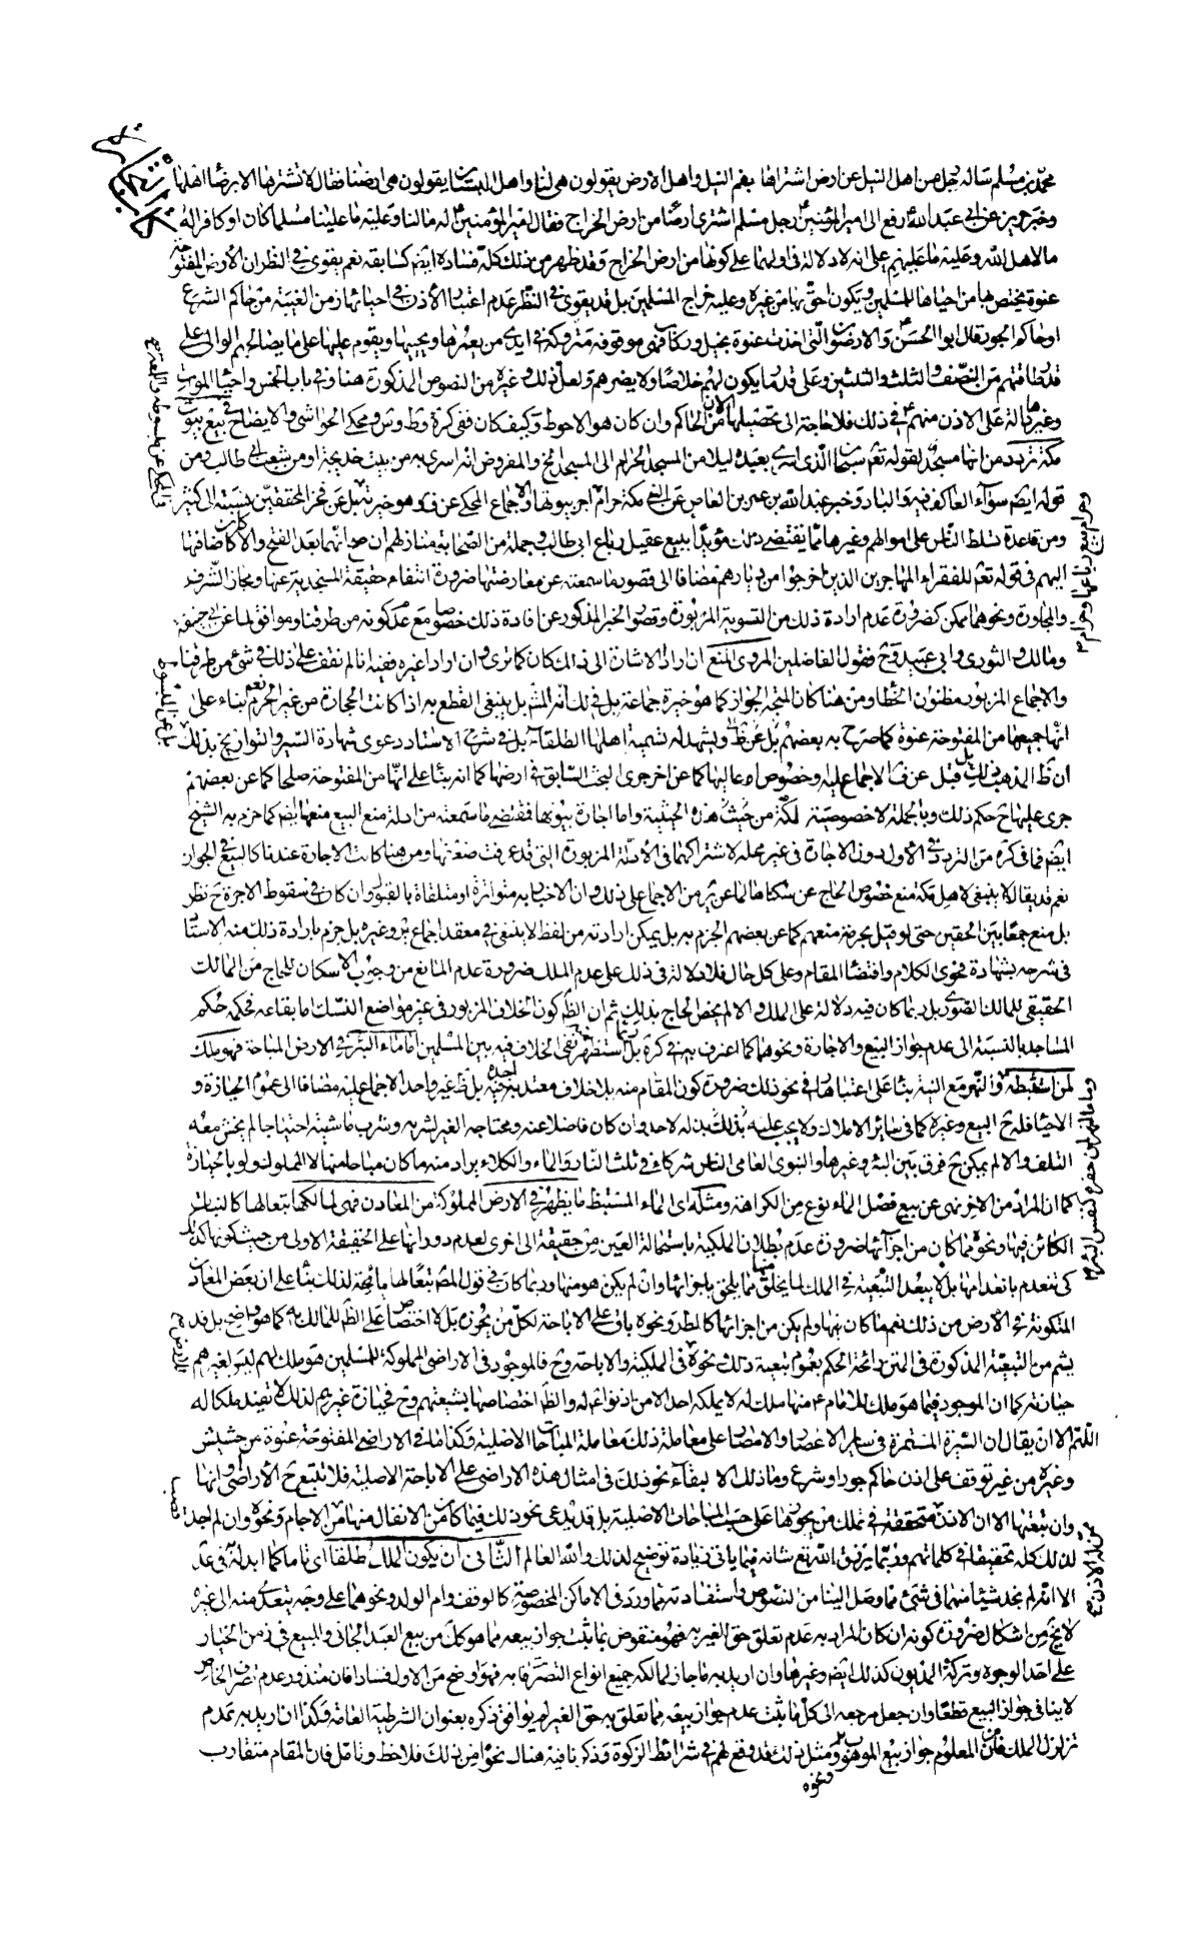 كتاب التجارة
محمد بن مسلم سأله رجل من اهل النيل عن ارض اشتراها بفم النيل واهل الارض يقولون هى لنا واهل يقولون هى ارضنا فقال لا تشترها الا برضا اهلها
وخبر حريز عن ابى عبد الله رفع الى امير المؤمنين رجل مسلم اشترى ارضا من ارض الخراج فقال امير المؤمنين له مالنا وعليه ما علينا مسلما كان او كافرا له
ما لاهل الله وعليه ما عليهم على انه لا دلالة فى اولهما على كونها من ارض الخراج وقد ظهر من ذلك كله فساده ايضم كسابقه نعم يقوى فى النظر ان الارض المفتوحة
عنوة يختص بها من احياها المسلمين ويكون احق بها من غيره وعليه خراج المسلمين بل قد يقوى فى النظر عدم اعتبار الاذن فى احيائها زمن الغيبة من حاكم الشرع
او حاكم الجور قال ابو الحسن والارضون التى اخذت عنوة بخيل وركاب فهى موقوفة متروكة فى ايدى من يعمرها ويحييها ويقوم عليها على ما يصالحهم الوالى على
قدر طاقتهم من النصف والثلث والثلثين وعلى قدر ما يكون لهم خلاصا ولا يضرهم ولعل ذلك وغيره من النصوص المذكورة هنا وفى باب الخمس واحياء الموات
وغيرها دالة على الاذن منهم فى ذلك فلا حاجة الى تحصيلها الان من الحاكم وان كان هو الاحوط وكيف كان ففى كرة وط وش ومحكى الحواشى والايضاح فى بيع بيوت
مكة تردد من انها مسجد لقوله تعم سبحان الذى اسرى بعبده ليلا من المسجد الحرام الى المسجد الخ والمفروض انه اسرى به من بيت خديجة او من شعب ابى طالب ومن
قوله ايضم سوآء العاكف فيه والباد وخبر عبد الله بن عمر بن العاص عن النبى مكة حرام اجر بيوتها والاجماع المحكى عن ف وهو خيرته بل عن فخر المحققين نسبته الى كثير
ومن قاعدة تسلط الناس على اموالهم وغيرها مما يقتضى ذلك مؤيدا ببيع عقيل رباع ابى طالب وجملة من الصحابة منازلهم ان هو انهما بعد الفتح والا كان اضافتها
اليهم فى قوله تعم للفقراء المهاجرين الذين اخرجوا من ديارهم مضافا الى قصور ما سمعته عن معارضتها ضرورة انتفاء حقيقة المسجدية عنها ومجاز الشرف
والمجاورة ونحوهما ممكن كضرورة عدم ارادة ذلك من التسوية المزبورة وقصور الخبر المذكور عن افادة ذلك خصوصا مع عدم كونه من طرقنا وموافق لما عن ابى حنيفة
ومالك والثورى وابى عبيد وح فقول الفاضلين المروى المنع ان اراد الاشارة الى ذلك كان كما ترى وان اراد غيره ففيه انا لم نقف على ذلك فى شئ من طرقنا
والاجماع المزبور مظنون الخطا ومن هنا كان المتجه الجواز كما هو خيرة جماعة بل فى لك انه المشهور بل ينبغى القطع به اذا كانت الحجارة من غير الحرم نعم بناء على
انها جميعها من المفتوحة عنوة كما صرح به بعضهم بل عن ط ويشهد له تسمية اهلها الطلقاء بل فى شرح الاستاد دعوى شهادة السير والتواريخ بذلك
ان ظ المذهب ذلك بل قيل عن ف الاجماع عليه وخصوص اوعاليها كما عن اخر جرى البحث السابق فى ارضها كما انه بناء على انها من المفتوحة صلحا كما عن بعضهم
جرى عليها ح حكم ذلك وبالجملة لا خصوصية لمكة من حيث هذه الحيثية واما اجارة بيوتها فمقتضى ما سمعته من ادلة منع البيع منعها ايضم كما جزم به الشيخ
ايضم فما فى كره من التردد فى الاول دون الاجارة فى غير محله لاشتراكهما فى الادلة المزبورة التى قد عرفت ضعفها ومن هنا كانت الاجارة عندنا كالبيع فى الجواز
نعم قد يقال لا ينبغى لاهل مكة منع خصوص الحاج عن سكناها لما عن ير من الاجماع على ذلك وان الاخبار به متواترة او متلقاة بالقبول وان كان فى سقوط الاجرة ح نظر
بل منع جمعا بين الحقين حتى لو قيل بحرمة منعهم كما عن بعضهم الجزم به بل يمكن ارادته من لفظ لا ينبغى فى معقد اجماع ير وغيره بل جزم بارادة ذلك منه الاستاد
فى شرحه بشهادة فحوى الكلام واقتضاء المقام وعلى كل حال فلا دلالة فى ذلك على عدم الملك ضرورة عدم المانع من وجوب الاسكان للحاج من المالك
الحقيقى للمالك الصورى بل ربما كان فيه دلالة على الملك والا لم يخص الحاج بذلك ثم ان الظم كون الخلاف المزبور فى غير مواضع النسك اما بقاعه فحكمه حكم
المساجد بالنسبة الى عدم جواز البيع والاجارة ونحوهما كما اعترف به فى كرة بل ربما استظهر نفى الخلاف فيه بين المسلمين اما ماء البئر فى الارض المباحة فهو ملك
لمن استنبطه والنهر مع النية بناء على اعتبارها فى نحو ذلك ضرورة كون المقام منه بلا خلاف معتد به اجده فيه بل ظ غير واحد الاجماع عليه مضافا الى عموم الحيازة و
الاحيا فله ح البيع وغيره كما فى سائر الاملاك ولا يجب عليه بذلك بذله لاحد وان كان فاضلا عنه ويحتاجه الغير لشربه وشرب ماشيته احتياجا لم يخش معه
التلف والا لم يكن ح فرق بين البئر وغيرها والنبوى العامى الناس شركاء فى ثلث النار والماء والكلاء يراد منه ما كان مباحا منها لا المملوك ولو بالحيازة
كما ان المراد من الاخر نهى عن بيع فضل الماء نوع من الكراهة ومثله اى الماء المستنبط ما يظهر فى الارض المملوكة من المعادن فهى لمالكها تبعا لها كالنبات
الكائن فيها ونحوه مما كان من اجزائها ضرورة عدم بطلان الملكية باستحالة العين من حقيقة الى اخرى لعدم دورانها على الحقيقة الاولى من حيث كونها كذلك
كى تنعدم بانعدامها بل لا يبعد التبعية فى الملك لما يخلق فيها مما يلحق باجزائها وان لم يكن هو منها وربما كان فى قول المصم تبعا لها رائحة لذلك بناء على ان بعض المعادن
المتكونة فى الارض من ذلك نعم ما كان فيها ولم يكن من اجزائها كالمطر ونحوه باق على الاباحة لكل من يحوزه بلا اختصاص على الظم للمالك به كما هو واضح بل قد
يشم من التبعية المذكورة فى المتن رائحة الحكم بعموم تبعية ذلك ونحوه فى الملكية والاباحة وح فالموجود فى الاراضى المملوكة للمسلمين هو ملك لهم ليس لغيرهم
حيازته كما ان الموجود فيما هو ملك للامام ع منها ملك له لا يملكه احد الا من اذنوا ع له والظم اختصاصها بشيعتهم وح فحيازة غيرهم لذلك لا تفيد ملكا له
اللهم الا ان يقال ان السيرة المستمرة فى ساير الاعصار والامصار على معاملة ذلك معاملة المباحات الاصلية وكذا ما فى الاراضى المفتوحة عنوة من حشيش
وغيره من غير توقف على اذن حاكم جور او شرع وما ذلك الا لبقآء نحو ذلك فى امثال هذه الاراضى على الاباحة الاصلية فلا تتبع ح الاراضى وانها
وان تبعتها الا ان الاذن متحققة فى تملك من يحوزها على حسب المباحات الاصلية بل قد يدعى نحو ذلك فيما كان من الانفال منها من الاجام ونحوه وان لم اجد
لذلك كله تحقيقا فى كلماتهم وربما يرزق الله تع شانه فيما ياتى زيادة توضيح لذلك والله العالم الثانى ان يكون الملك طلقا اى تاما كما ابدله فى عد
الا انا لم نجد شيئا منهما فى شئ مما وصل الينا من النصوص واستفادته مما ورد فى الاماكن المخصوصة كالوقف وام الولد ونحوهما على وجه يتعدى منه الى غيره
لا يخ من اشكال ضرورة كونه ان كان المراد به عدم تعلق حق الغير به فهو منقوض بما ثبت جواز بيعه مما هو كك من بيع العبد الجانى والمبيع فى زمن الخيار
على احد الوجوه وتركة المديون كذلك ايضم وغيرها وان اريد به ما جاز لمالكه جميع انواع التصرفا به فهو اوضح من الاول فسادا فان منذور عدم تصرف الخاص
لا ينافى جواز البيع قطعا وان جعل مرجعه الى كل ما ثبت عدم جواز بيعه مما تعلق به حق الغير لم يوافق ذكره بعنوان الشرطية العامة وكذا ان اريد به عدم
تزلزل الملك فان من المعلوم جواز بيع الموهوب ونحوه ومثل ذلك قد وقع لهم فى شرائط الزكوة وذكرنا فيه هناك نحوا من ذلك فلاحظ وتامل فان المقام متقارب
وحرام بيع رباعها وحرام
بل عن المبسوط
وماء النهر لمن حفره كنفس البئر
للارض
وقصب